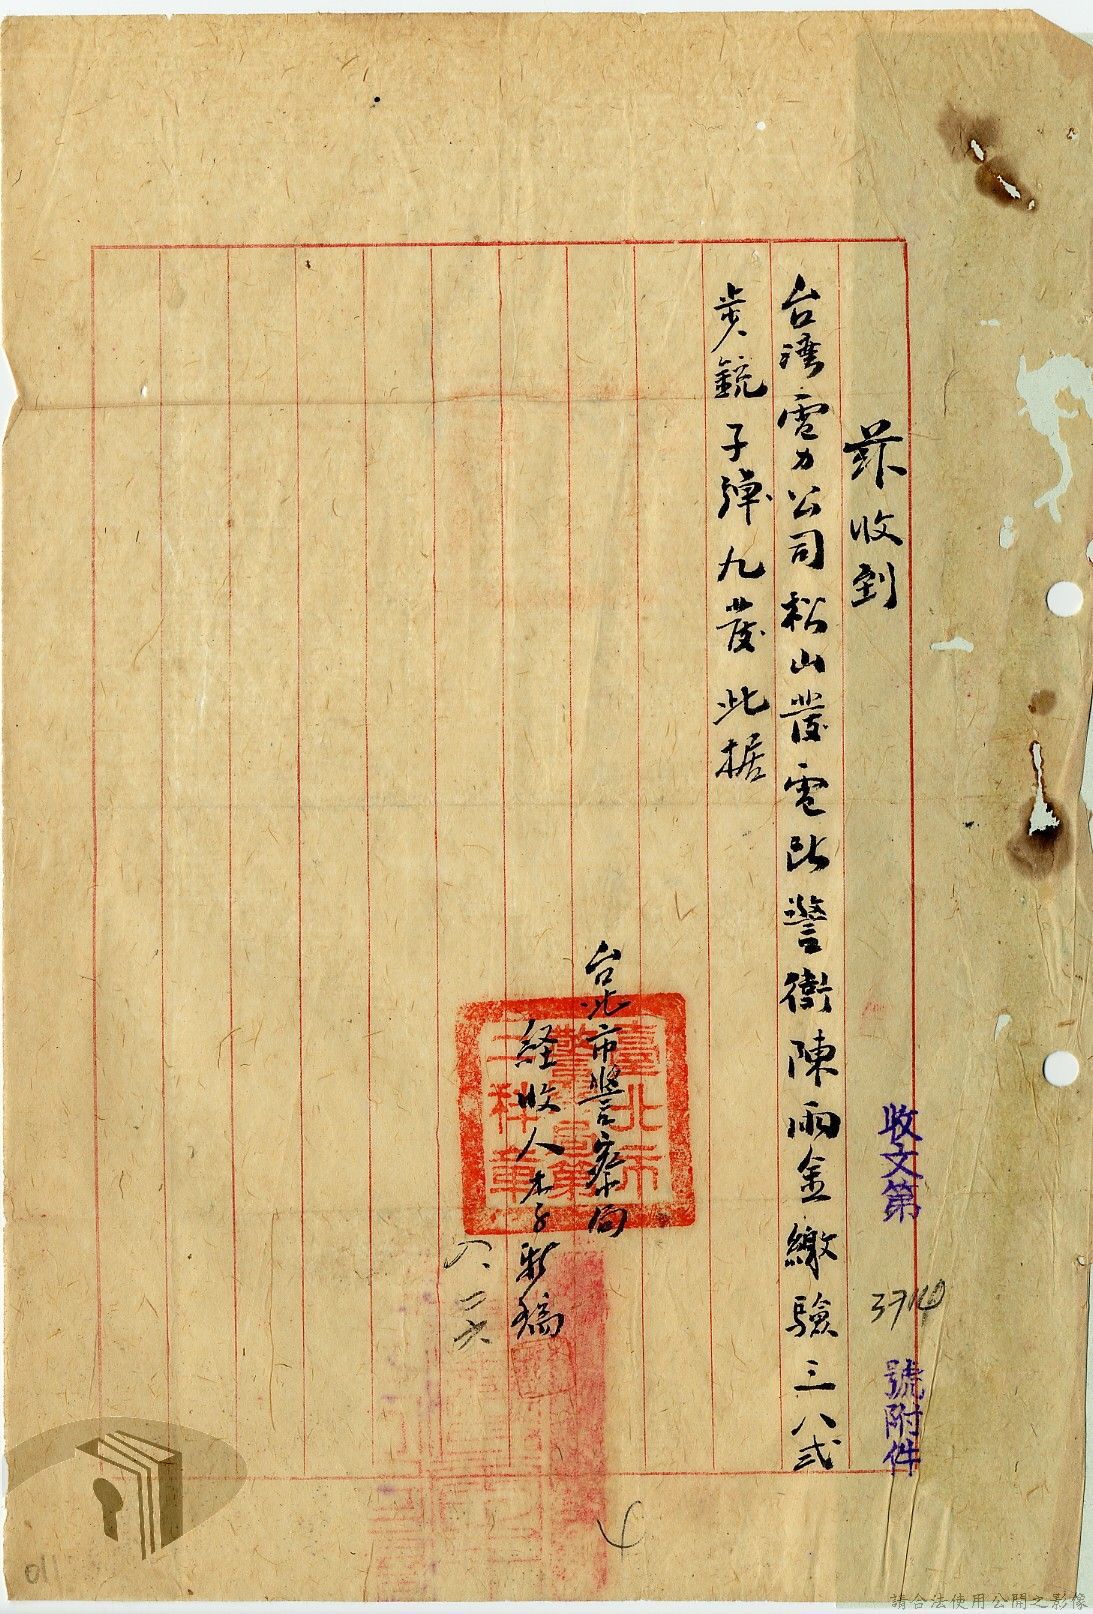 茲收到
台灣電力公司松山發電所警衛陳雨金繳驗三八式
步銃子彈九發此據
台北市警察局
経收人李
八、二六
臺北市
警察局第
二科章
收文第 3914 號附件
011
請合法使用公開之影像